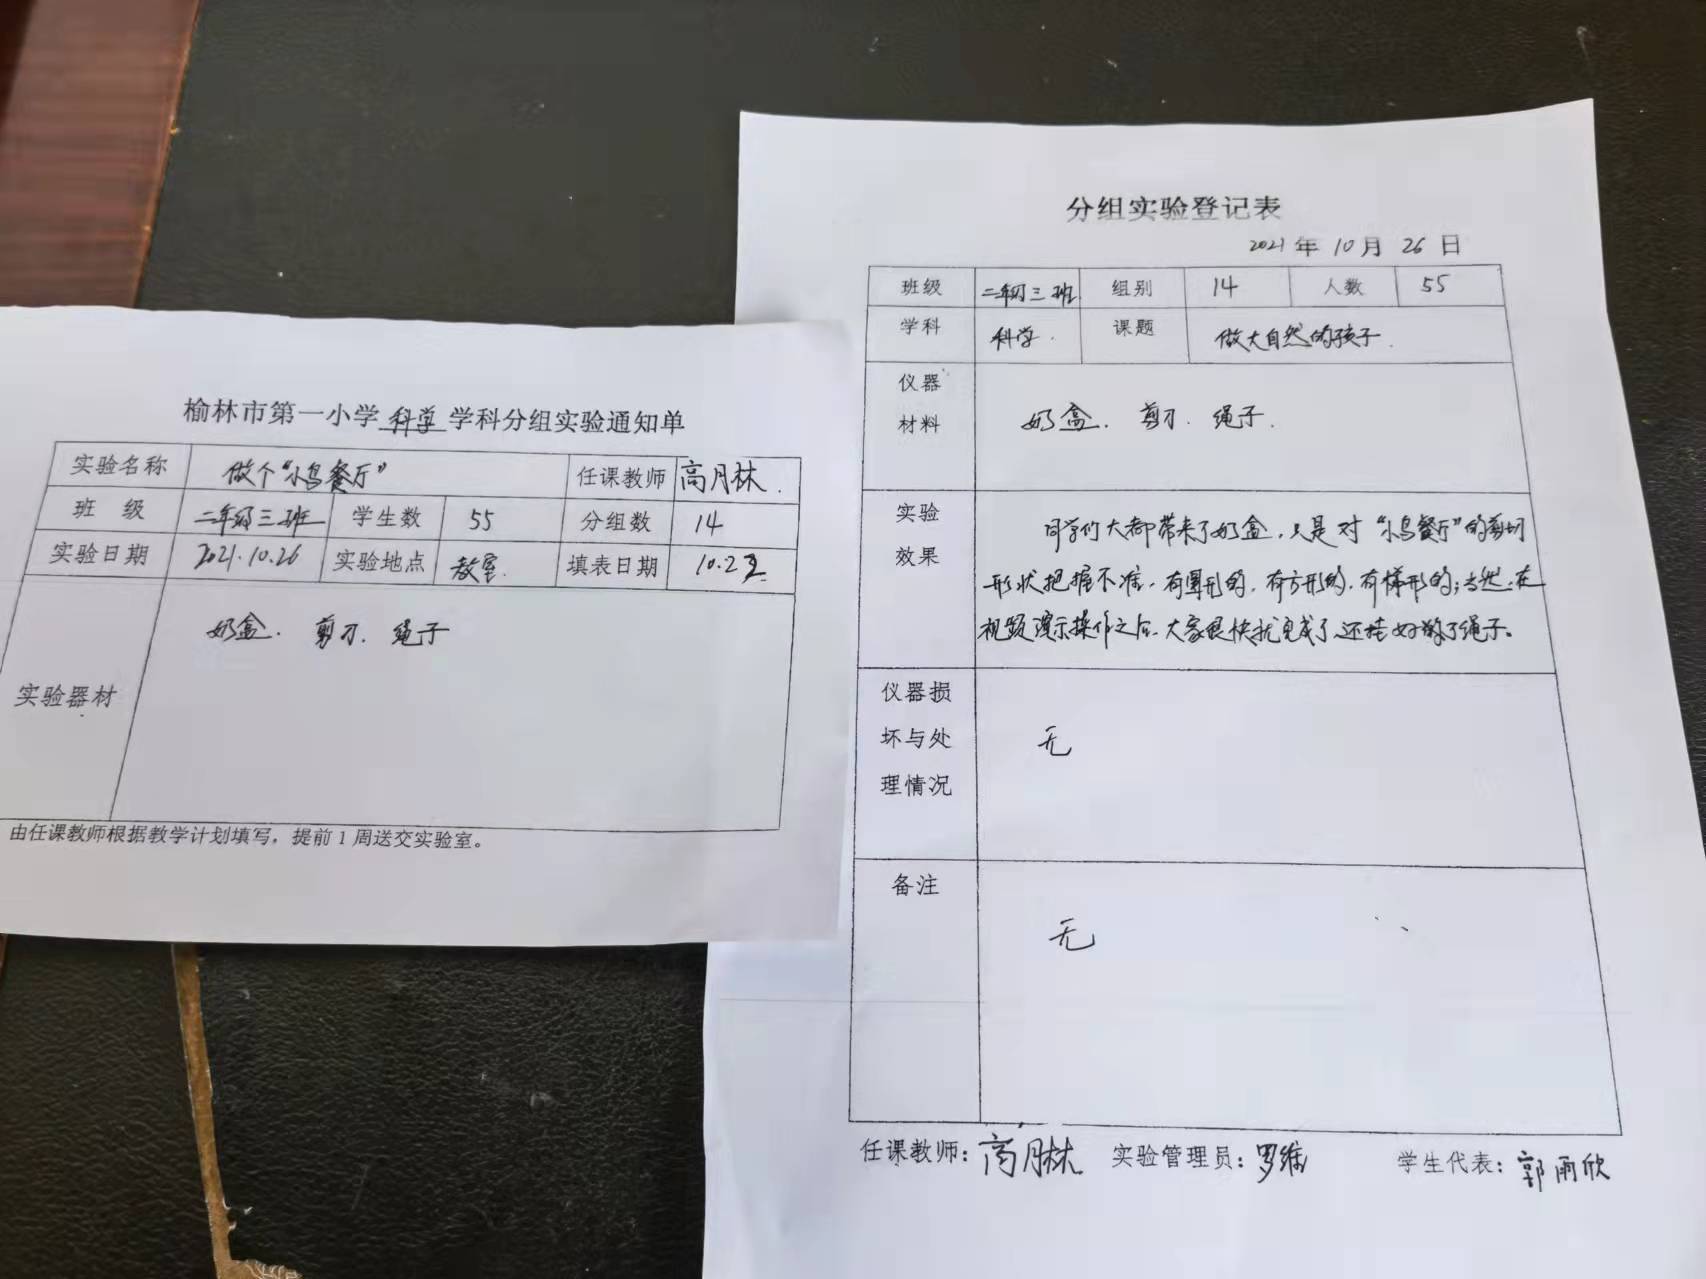 榆林市第一小学 科学 学科分组实验通知单
实验名称 做个“小鸟餐厅” 任课教师 高月林.
班 级 二年级三班 学生数 55 分组数 14
实验日期 2021.10.26 实验地点 教室. 填表日期
奶盒. 剪刀. 绳子
实验器材
由任课教师根据教学计划填写，提前1周送交实验室。
分组实验登记表
2021 年 10 月 26 日
班级 二年级三班 组别 14 人数 55
学科 科学. 课题 做大自然的孩子.
仪器
材料 奶盒. 剪刀. 绳子.
实验 同学们大都带来了奶盒，只是对“小鸟餐厅”的剪切
效果 形状把握不准，有圆形的，有方形的，有梯形的；当然，在
视频演示操作之后，大家很快就完成了，还挂好了绳子。
仪器损
坏与处 无
理情况
备注
无
任课教师：高月林 实验管理员：罗维 学生代表：郭雨欣